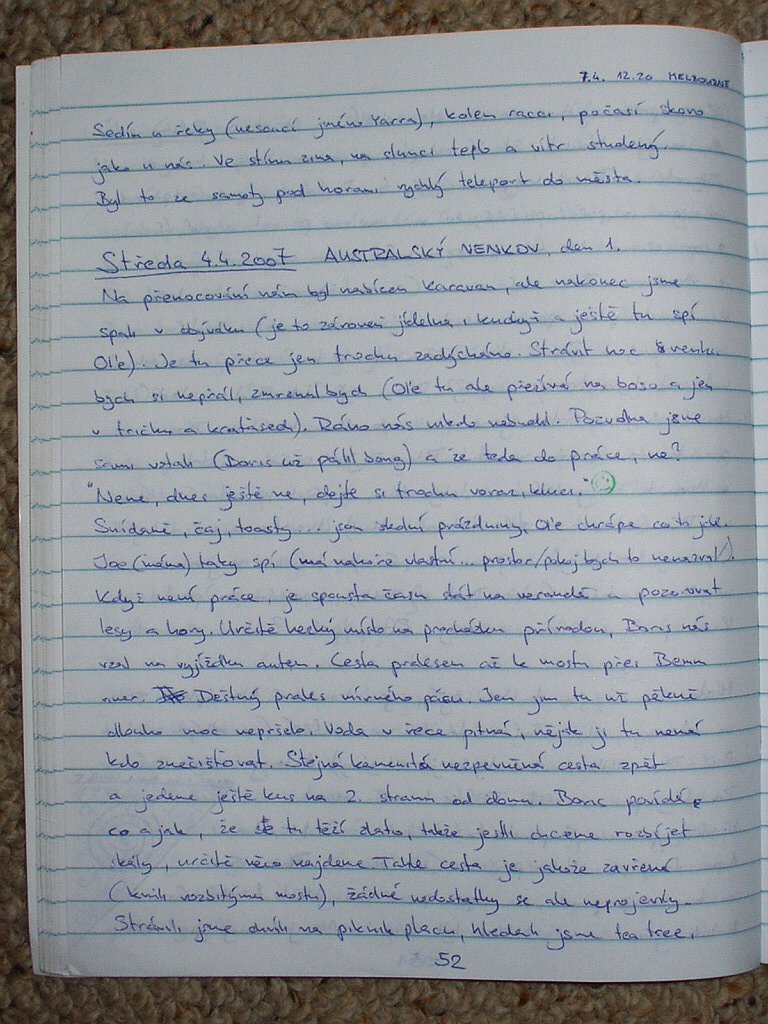 7.4. 12.20 MELBOURNE
Sedím u řeky (nesoucí jméno Yarra), kolem racci, počasí skoro
jako u nás. Ve stínu zima, na slunci teplo a vítr studený.
Byl to ze samoty pod horami rychlý teleport do města.
Středa 4.4.2007 AUSTRALSKÝ NENKOV, den 1.
Na přenocování nám byl nabízen karavan, ale nakonec jsme
spali v obýváku (je to zároveň jídelna, kuchyň a ještě tu spí
Ol'e). Je tu přece jen trochu zadýcháno. Strávit noc venku
bych si nepřál, zmrznul bych (Ol'e tu ale přežívá na boso a jen
v tričku a kraťasech). Ráno nás nikdo nebudil. Pozvolna jsme
sami vstali (Boris už pálil bong) a že teda do práce, ne?
"Nene, dnes ještě ne, dejte si trochu voraz, kluci."
Snídaně, čaj, toasty... jsou školní prázdniny, Ol'e chrápe co to jde.
Joe (máma) taky spí (má nahoře vlastní... prostor/pokoj bych to nenazval).
Když není práce, je spousta času stát na verandě a pozorovat
lesy a hory. Určitě hezký místo na procházku přírodou, Boris nás
vzal na vyjížďku autem. Cesta pralesem až k mostu přes Bemm
river. Deštný prales mírného pásu. Jen jim tu už pěkně
dlouho moc nepršelo. Voda v řece pitná, nějak ji tu nemá
kdo znečišťovat. Stejná kamenitá nezpevněná cesta zpět
a jedeme ještě kus na 2. stranu od domu. Boris povídá
co a jak, že se tu těží zlato, takže jestli chceme rozbíjet
skály, určitě něco najdeme. Tahle cesta je jakože zavřená
(kvůli rozbitýmu mostu), žádné nedostatky se ale neprojevily.
Strávili jsme chvíli na piknik placu, hledali jsme tea tree,
52